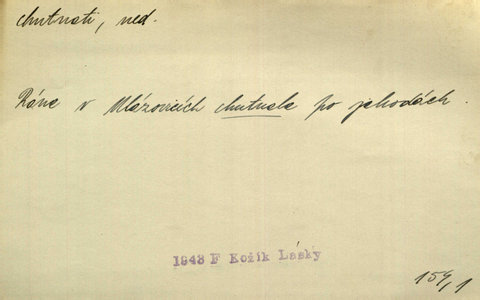 chutnati, ned.
Ráno v Mlázovicích chutnala po jahodách.
1943 F Kožík Lásky
154,1